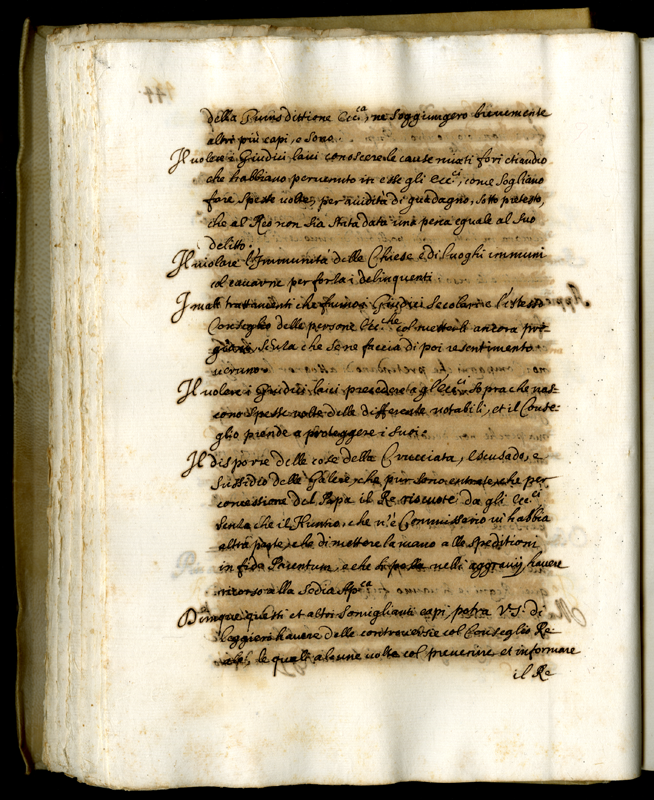 della Giurisdittione Ecc.ca, ne soggiungero brevemente
altri più capi, e sono
Il volere i Giudici laici conoscere le cause misti fori etiandio
che habbiano pervenuto in esse gli Ecc.ci, come sogliano
fare spesse volte, per avidità di guadagno, sotto pretesto,
che al Reo non sia stata data una pena eguale al suo
delitto.
Il violare l'Immunità delle Chiese e di luoghi immuni
col cavarne per forza i delinquenti
I mali trattamenti che fanno i Giudici secolari e l'istesso
Conseglio delle persone Ecc.che col metterli ancora pri-
gioni, senza che se ne faccia di poi resentimento
veruno
Il volere i Giudici laici precedere a gl'Ecc.ci sopra che nas-
cono spesse volte delle differenze notabili, et il Conse-
glio prende a proteggere i suoi
Il disporre delle cose della Crucciata, Escusado, e
Sussidio delle Galere, che pur sono entrate che per
concessione del Papa il Re riscuote da gli Ecc.ci
senza che il Nuntio, che n'è Commissario vi habbia
altra parte, che di mettere la mano alle speditioni
in fida Parentum, e che si possa nelli aggravij havere
ricorso alla Sedia Ap.ca
Dunque questi et altri somiglianti capi, potrà V.S. di
leggieri havere delle controversie col Conseglio Re-
ale, le quali alcune volte col prevenire et informare
il Re